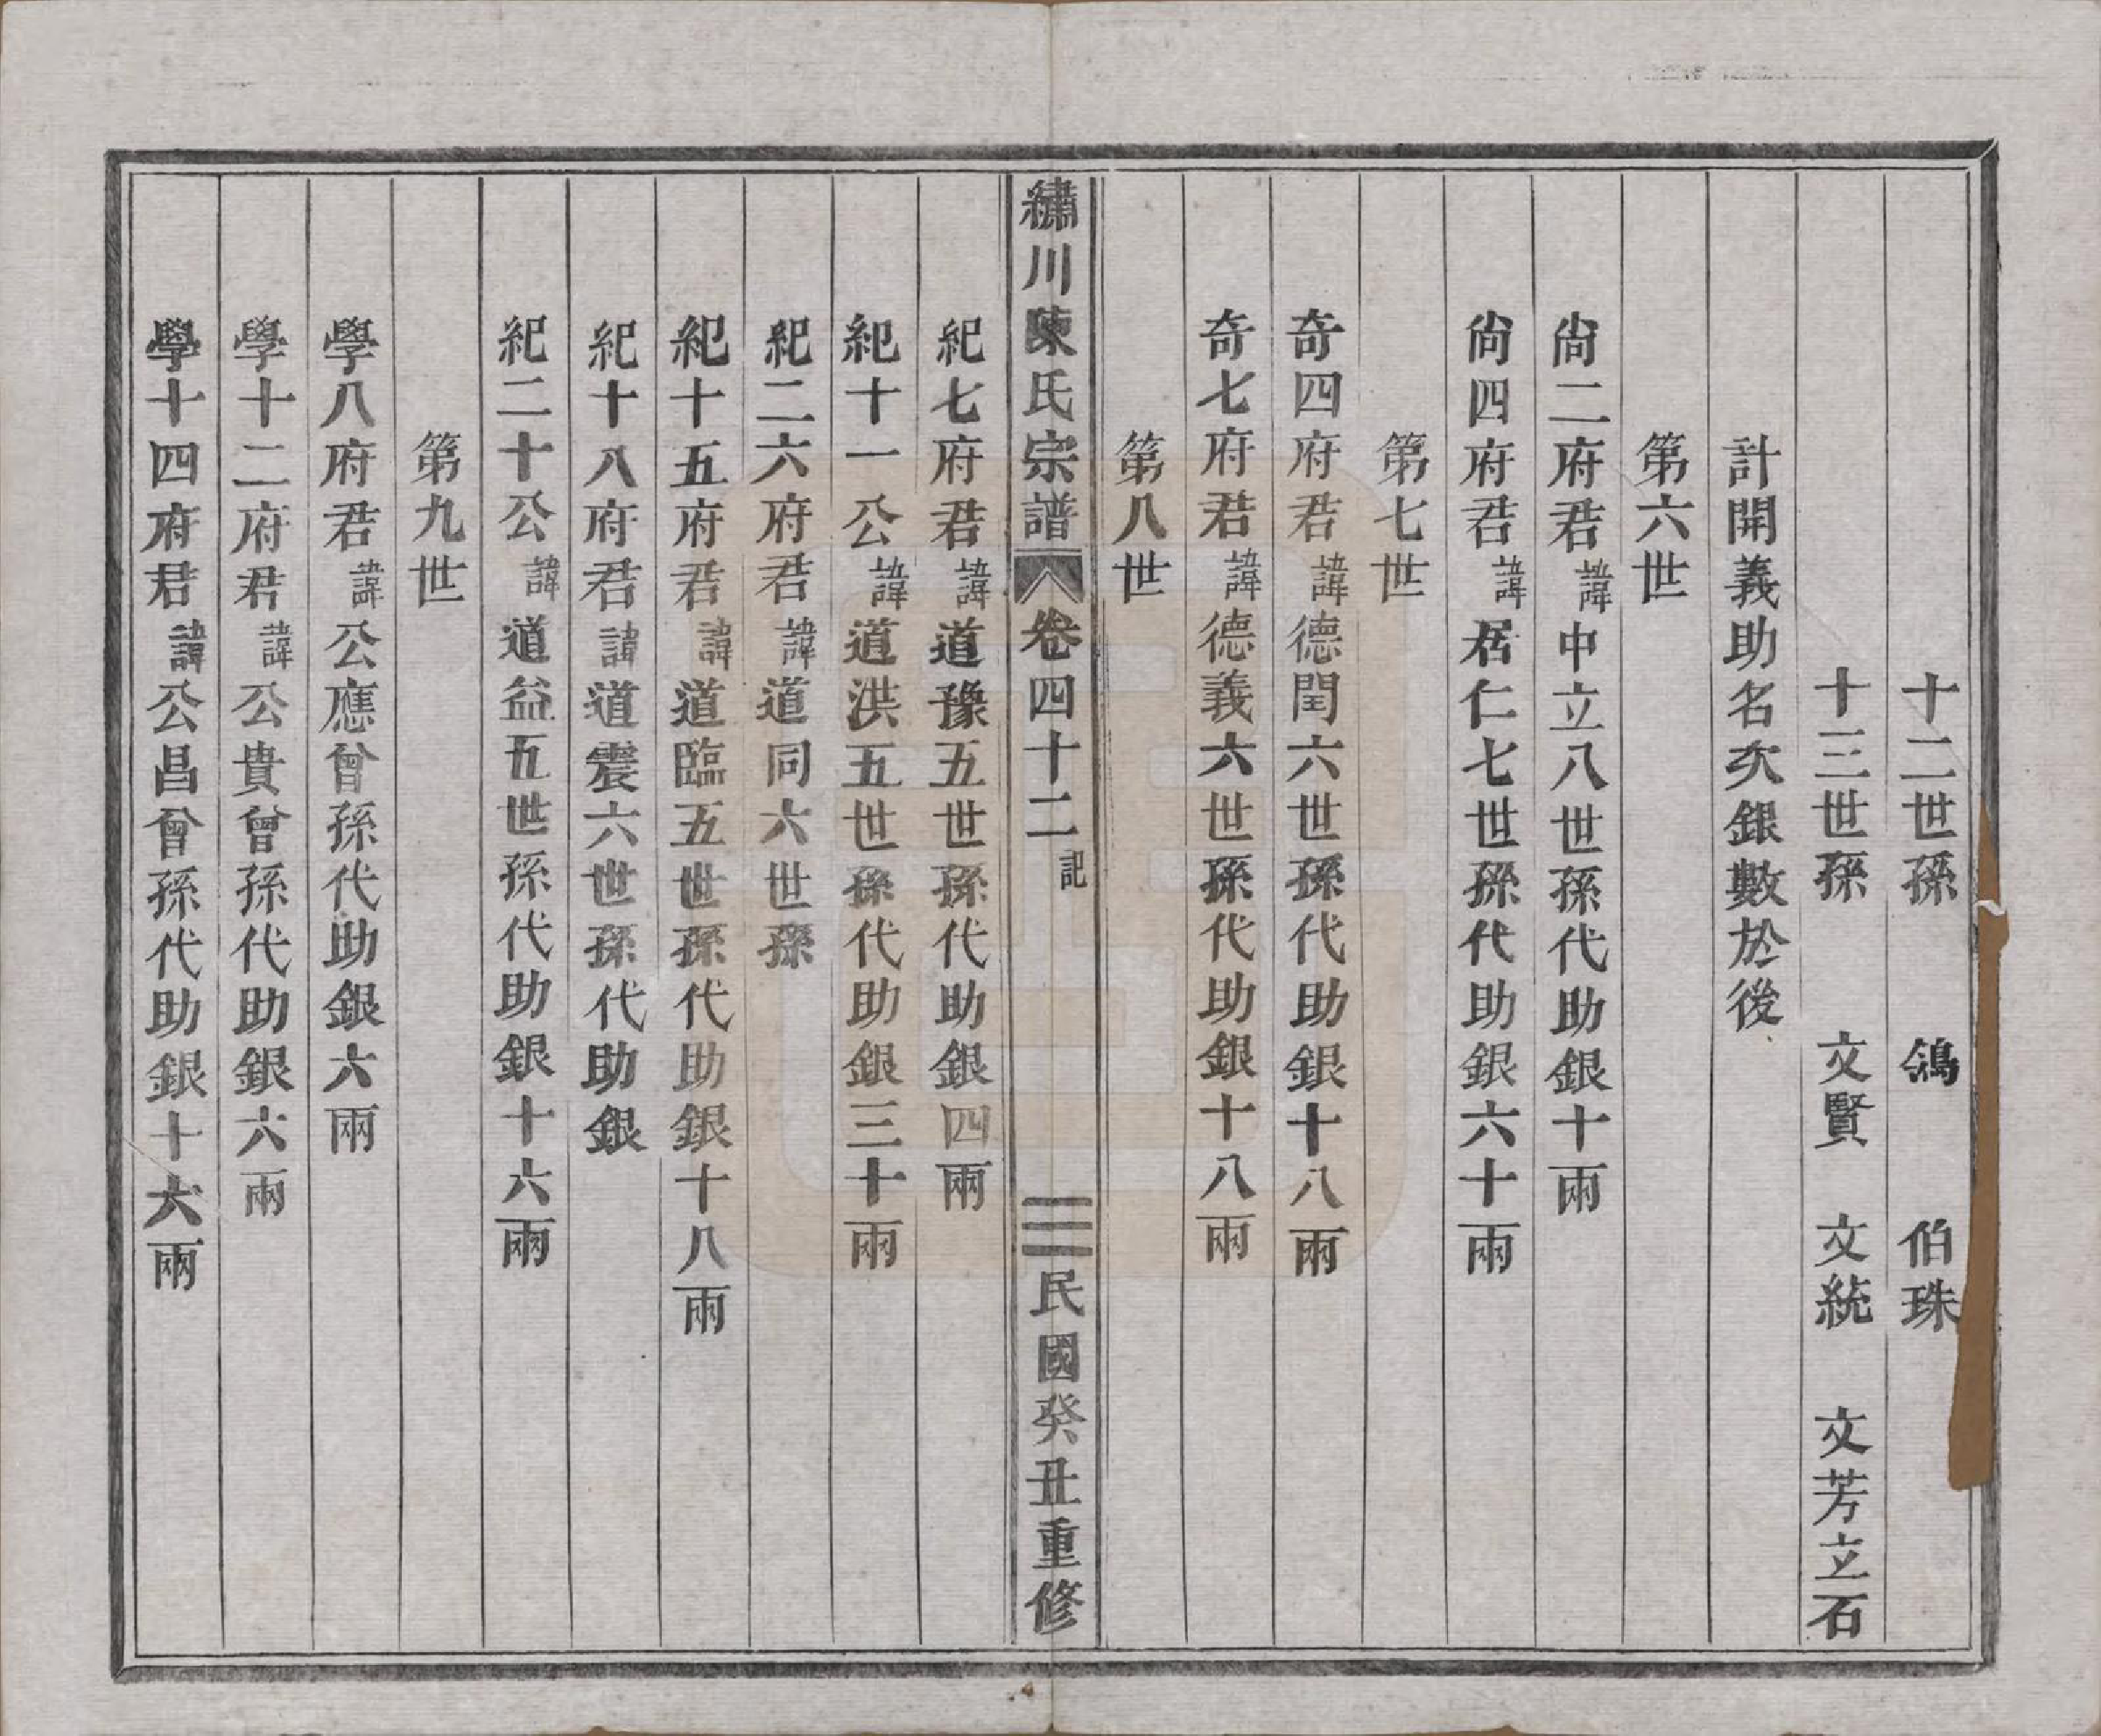 十二世孫 鴒 伯珠
十三世孫 文賢 文統 文芳立石
計開義助名次銀數於後
第六世
尙二府君諱中立八世孫代助銀十兩
尙四府君諱居仁七世孫代助銀六十兩
第七世
奇四府君諱德閏六世孫代助銀十八兩
奇七府君諱德義六世孫代助銀十八兩
第八世
繡川陳氏宗譜 卷四十二 記 三 民國癸丑重修
紀七府君諱道豫五世孫代助銀四兩
紀十一公諱道洪五世孫代助銀三十兩
紀二六府君諱道同六世孫
紀十五府君諱道臨五世孫代助銀十八兩
紀十八府君諱道震六世孫代助銀
紀二十公諱道益五世孫代助銀十六兩
第九世
學八府君諱公應曾孫代助銀六兩
學十二府君諱公貴曾孫代助銀六兩
學十四府君諱公昌曾孫代助銀十六兩